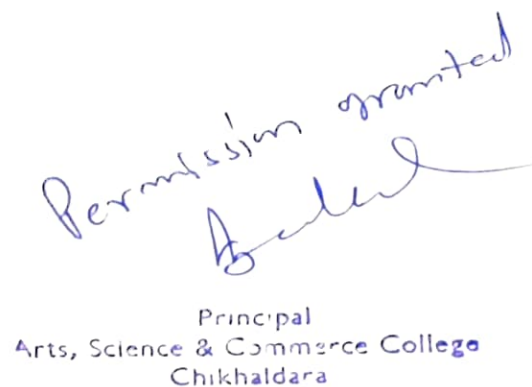 Permission granted
Principal
Arts, Science & Commerce College
Chikhaldara